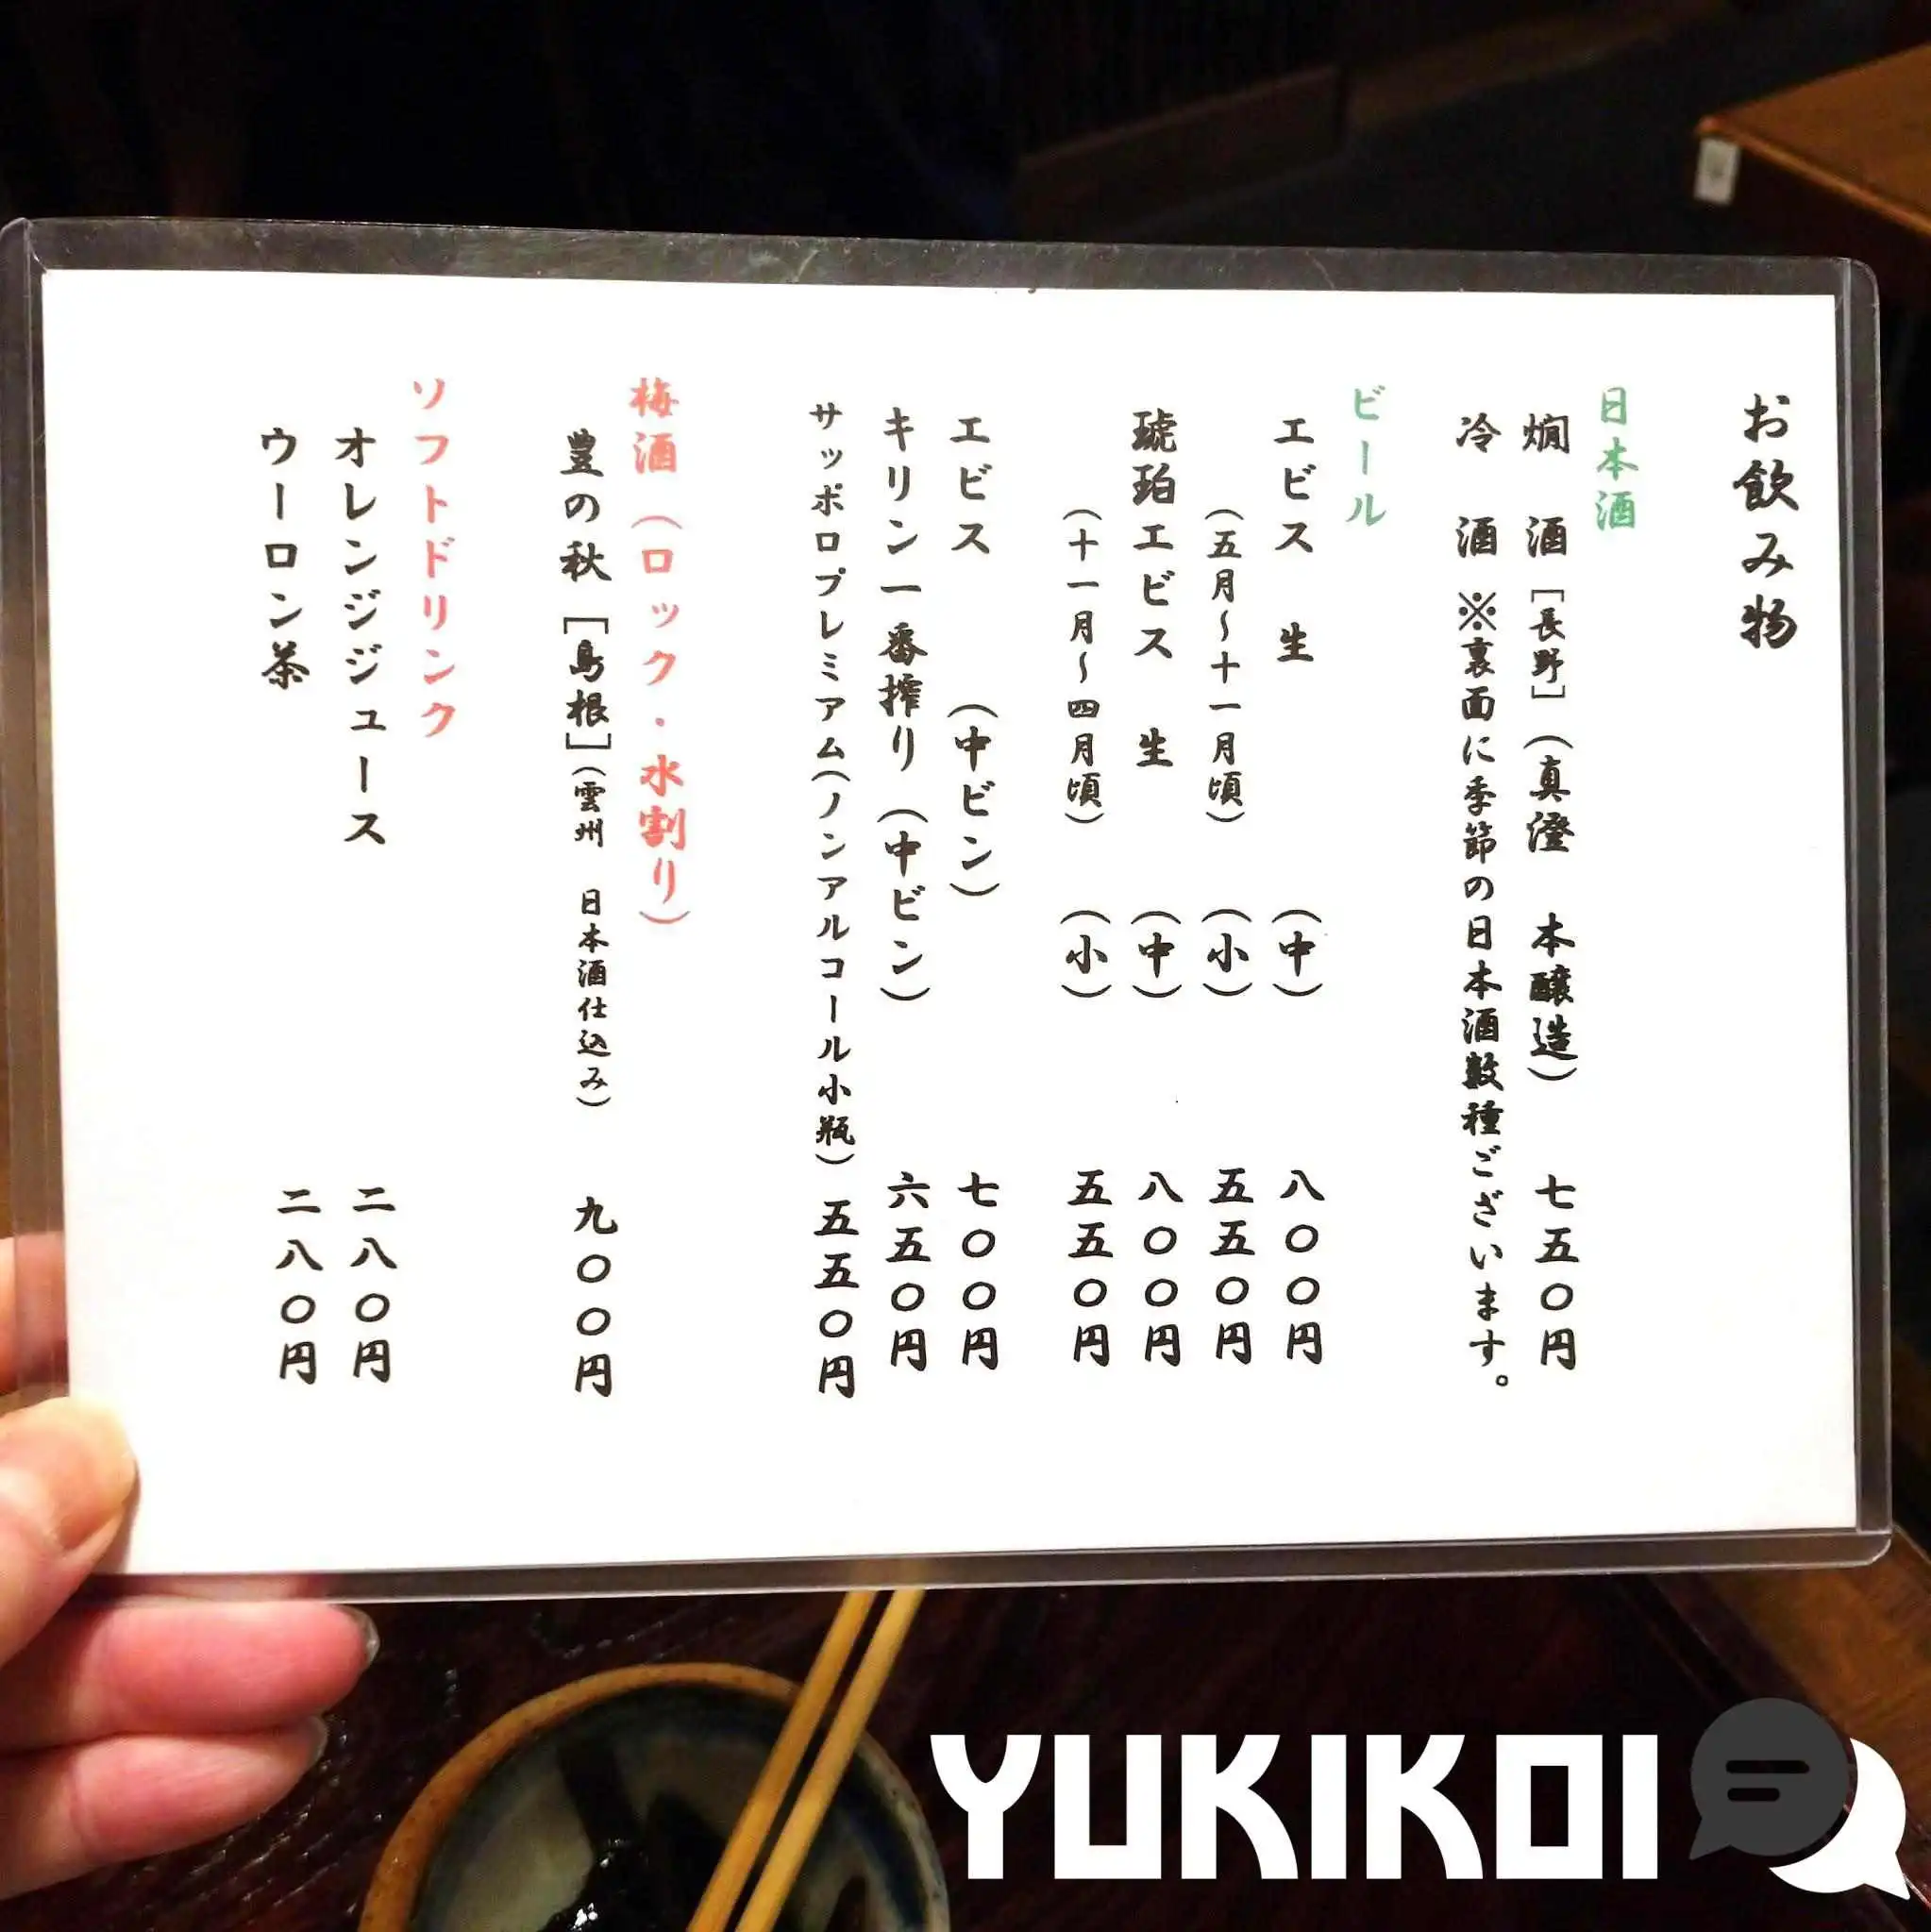 お飲み物
日本酒
燗 酒[長野](真澄 本醸造) 七五〇円
冷 酒 ※裏面に季節の日本酒数種ございます。
ビール
エビス 生 (中) 八〇〇円
(五月~十一月頃) (小) 五五〇円
琥珀エビス 生 (中) 八〇〇円
(十一月~四月頃) (小) 五五〇円
エビス (中ビン) 七〇〇円
キリン一番搾り(中ビン) 六五〇円
サッポロプレミアム(ノンアルコール小瓶) 五五〇円
梅酒(ロック・水割り)
豊の秋[島根](雲州 日本酒仕込み) 九〇〇円
ソフトドリンク
オレンジジュース 二八〇円
ウーロン茶 二八〇円
YUKIKOI